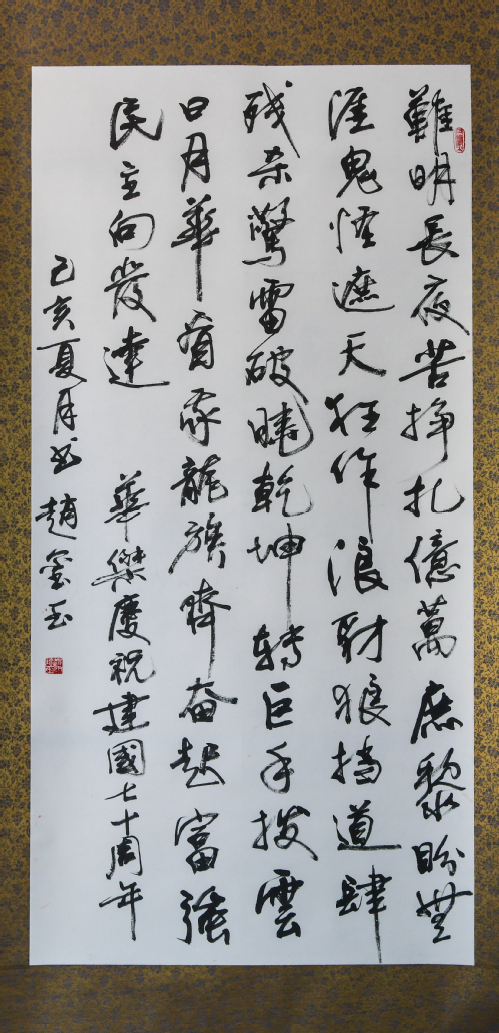 難明長夜苦掙扎億萬庶黎盼無
涯鬼怪遮天狂作浪豺狼挡道肆
殘杀驚雷破曉乾坤轉巨手拨雲
日月華首家龍旗齊奋起富強
民主向發達
華傑慶祝建國七十周年
己亥夏月书趙金玉